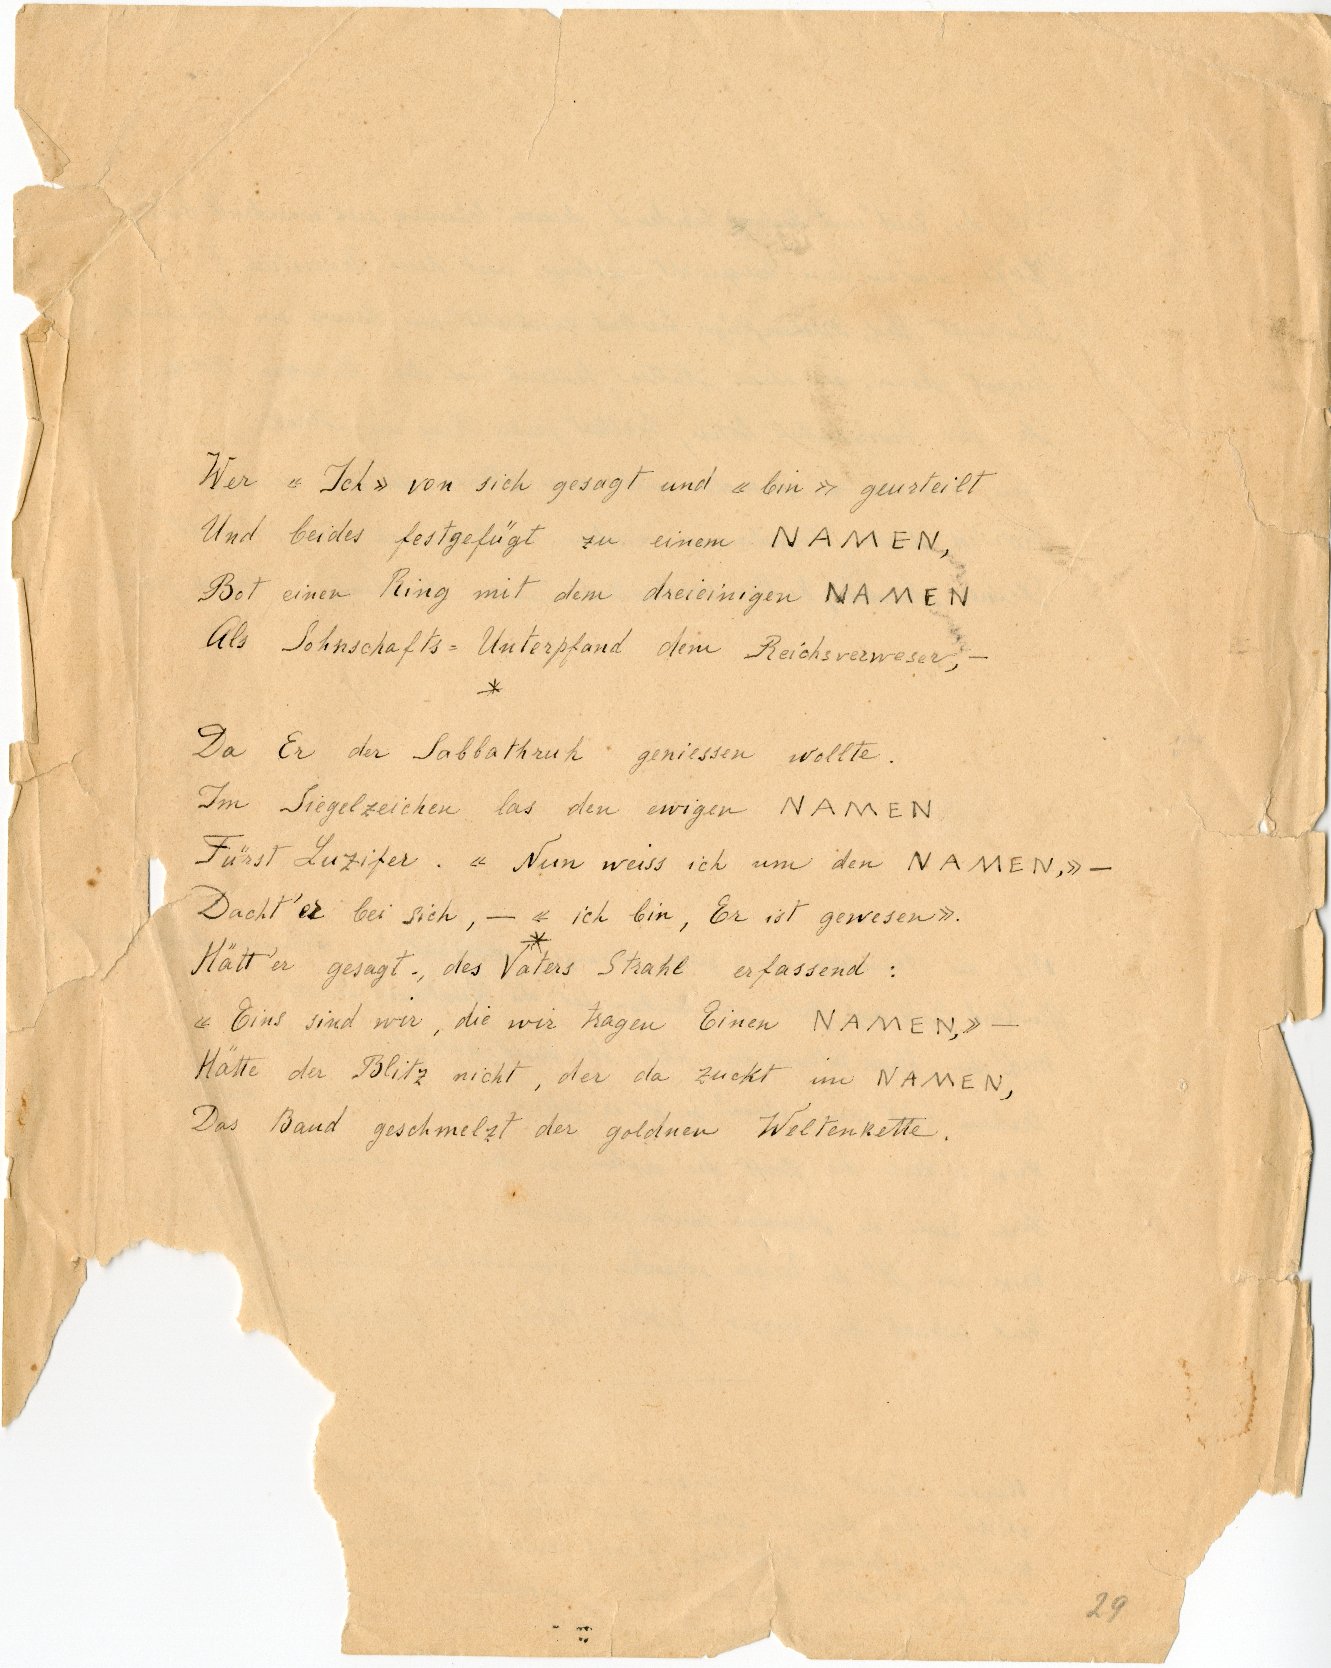 Wer « Ich » von sich gesagt und « bin » geurteilt
Und beides festgefügt zu einem NAMEN,
Bot einen Ring mit dem dreieinigen NAMEN
Als Sohnschafts = Unterpfand dem Reichsverweser, —
*
Da Er der Sabbathruh geniessen wollte.
Im Siegelzeichen las den ewigen NAMEN
Fürst Luzifer. « Nun weiss ich um den NAMEN,» —
Dacht'er bei sich, — « ich bin, Er ist gewesen».
*
Hätt'er gesagt., des Vaters Strahl erfassend :
« Eins sind wir, die wir tragen Einen NAMEN,» —
Hätte der Blitz nicht, der da zuckt im NAMEN,
Das Band geschmelzt der goldnen Weltenkette.
29